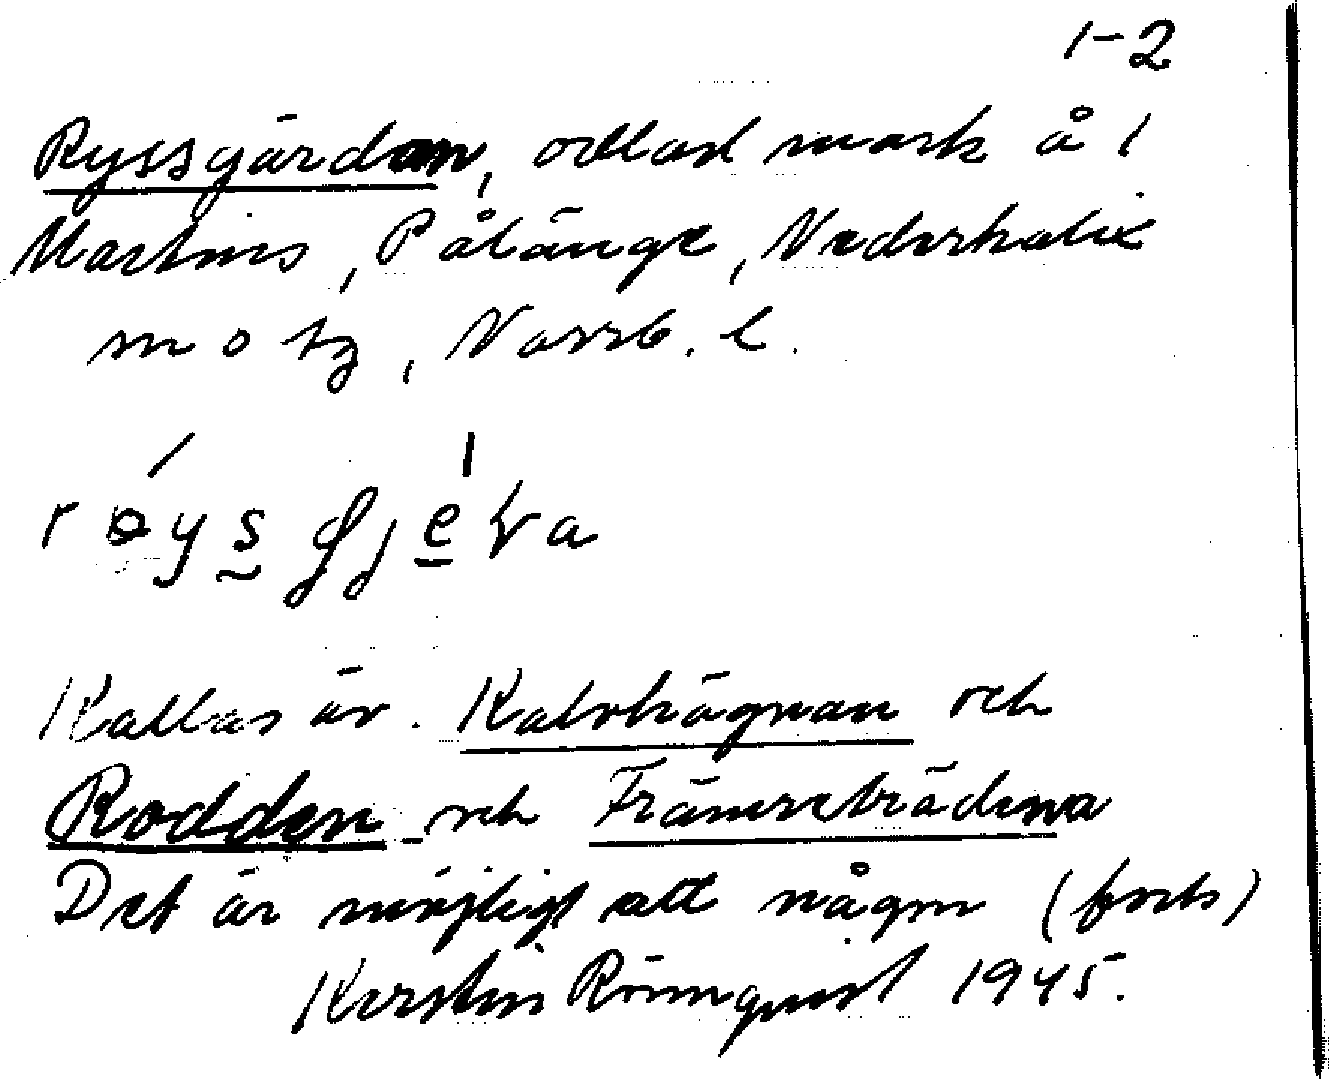 1-2
Ryssgärdan, odlad mark å 1
Martins, Pålänge, Nederkalix
m o tg, Norrb. l.
r ɵ́ y s g j é ɽ a
Kallas äv. Kalvhägnan och
Rodden och Främreträdena
Det är möjligt att någon (forts)
Kerstin Rönnqvist 1945.